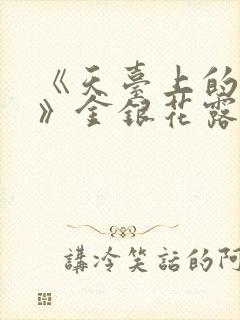 《天臺上的
》金銀花露
講冷笑話的阿